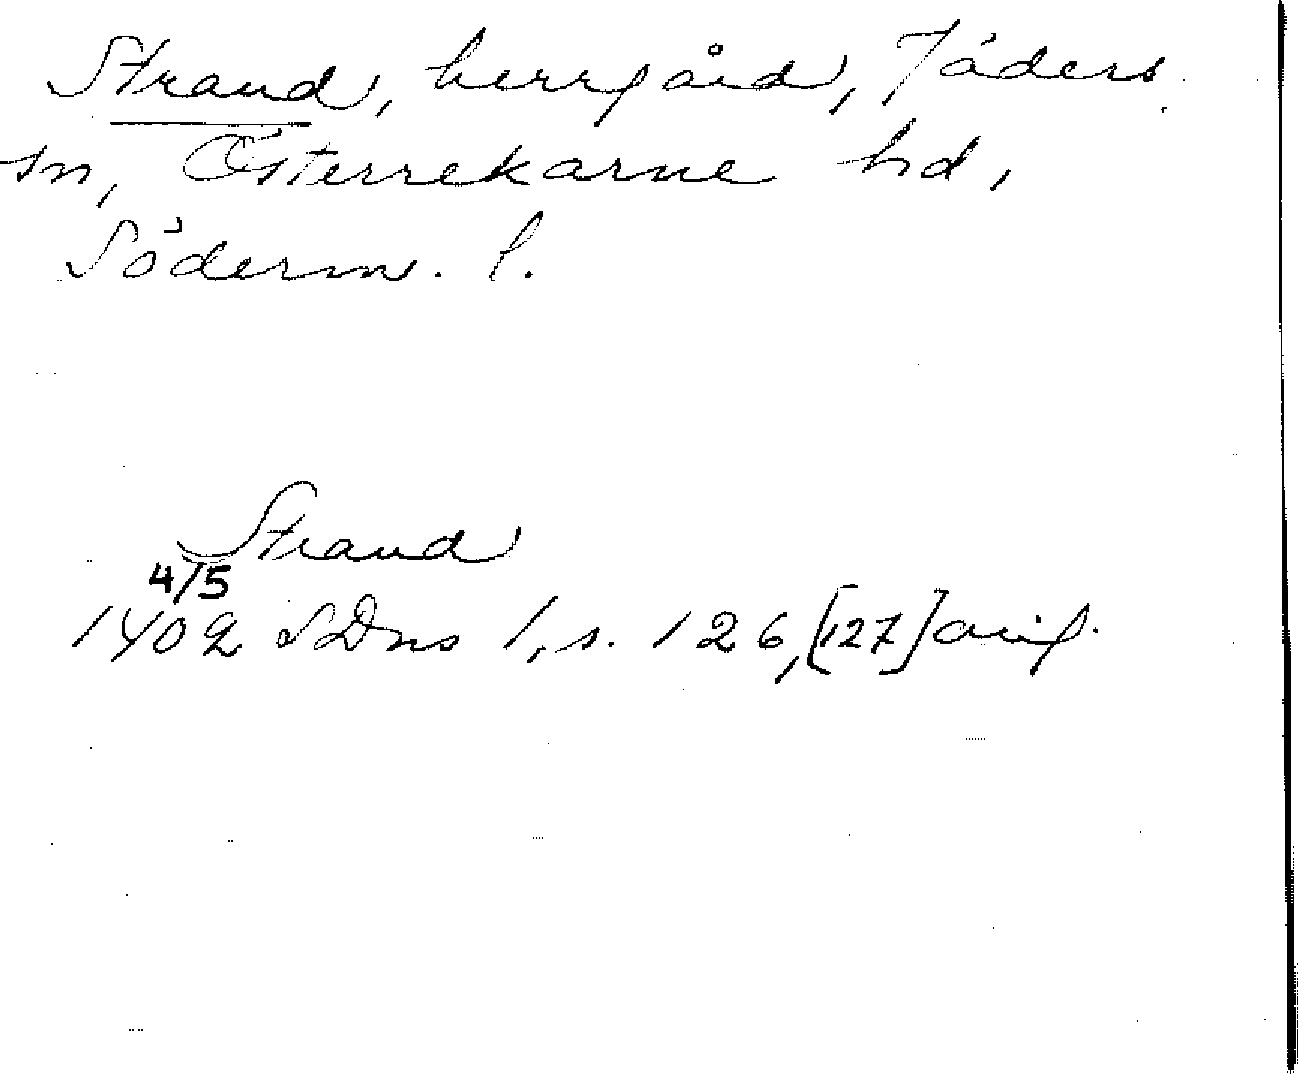 Strand, herrgård, Jäders
sn, Österrekarne hd,
Söderm. l.
Strand
4/5
1402 SDns 1, s. 126, [127] orig.